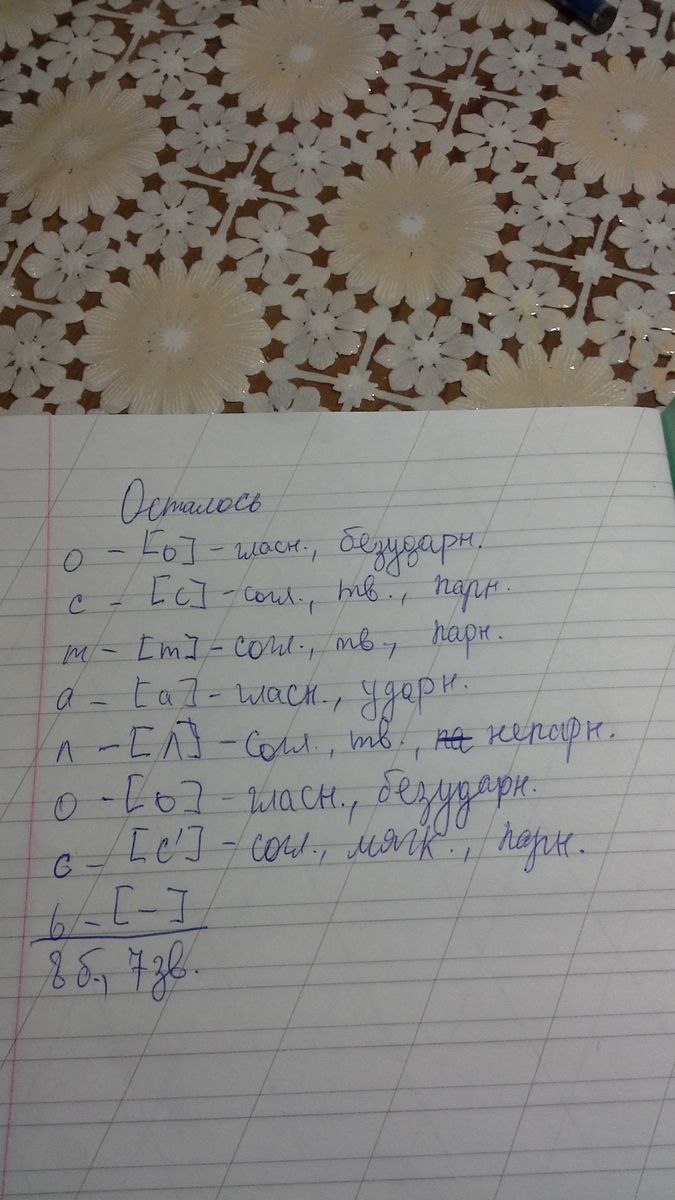 Осталось
о - [о] - гласн., безударн.
с - [с] - согл., тв., парн.
т - [т] - согл., тв., парн.
а - [а] - гласн., ударн.
л - [л] - согл., тв., па непарн.
о - [о] - гласн., безударн.
с - [с'] - согл., мягк., парн.
ь - [-]
8 б., 7 зв.